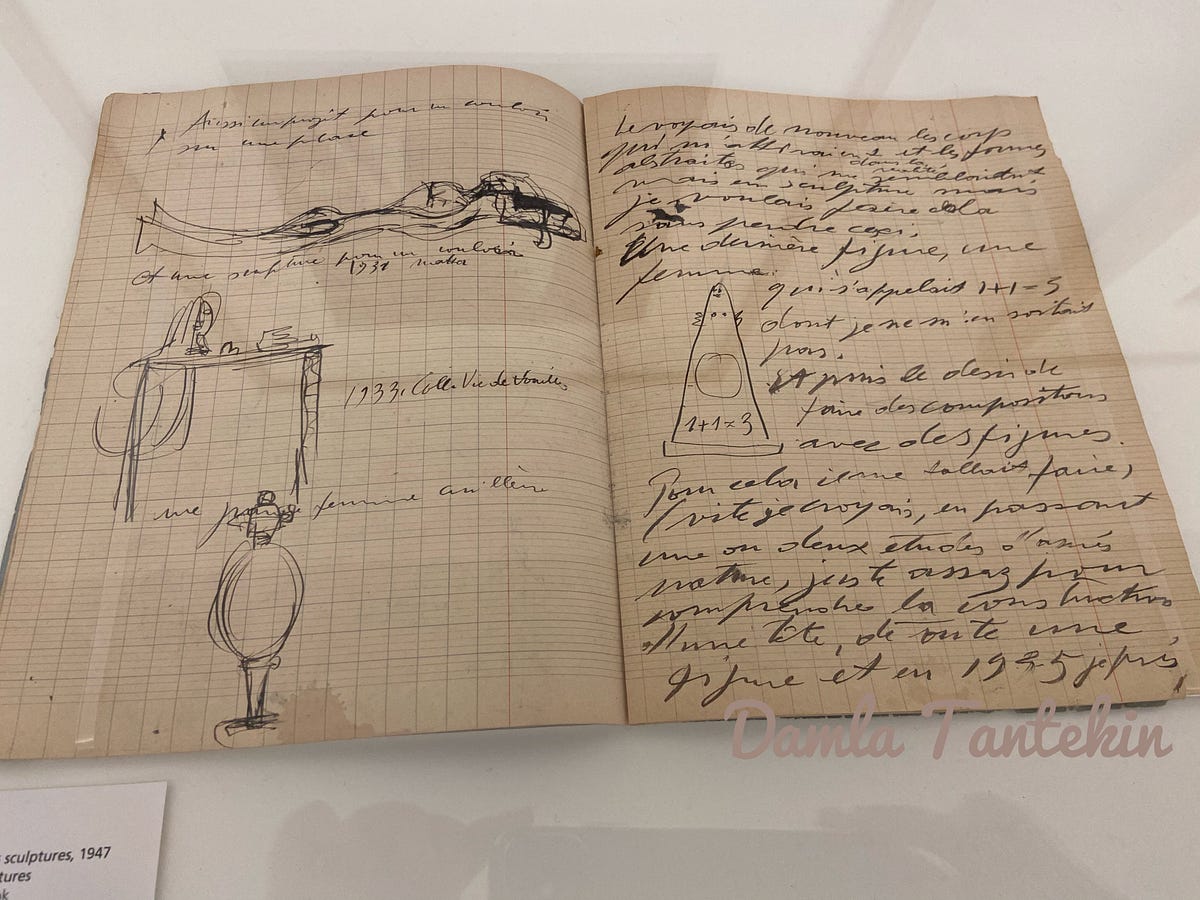 Aussi un projet pour un couloir
sur une place
et une sculpture pour un couloir
1931
1933. Coll. Vic de
une femme
Je voyais de nouveau les corps
qui m'attiraient et les formes
abstraites qui me semblaient
dans la réalité
vrais en sculpture mais
je voulais faire cela
sans perdre ceci.
Une dernière figure, une
femme
qui s'appelait 1+1=3
dont je ne m'en sortait
pas.
Et puis le désir de
faire des compositions
avec des figures.
1+1=3
Pour cela il me fallait faire,
(vite je croyais, en passant
une ou deux études d'après
nature, juste assez pour
comprendre la construction
d'une tête, de toute une
figure et en 1935 je pris
Damla Tantekin
sculptures, 1947
tures